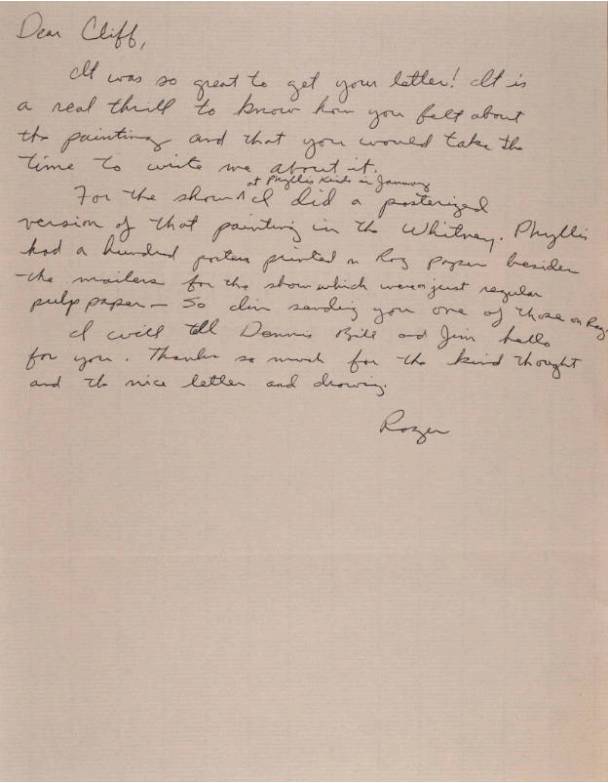 Dear Cliff,
It was so great to get your letter! It is
a real thrill to know how you felt about
the painting and that you would take the
time to write me about it.
at Phyllis Kinds in January
For the show ^ I did a posterized
version of that painting in the Whitney. Phyllis
had a hundred posters printed on Rag paper besides
the mailers for the show which were just regular
pulp paper — So I'm sending you one of those on Rag.
I will tell Dennis Bill and Jim hello
for you. Thanks so much for the kind thought
and the nice letter and drawing.
Roger